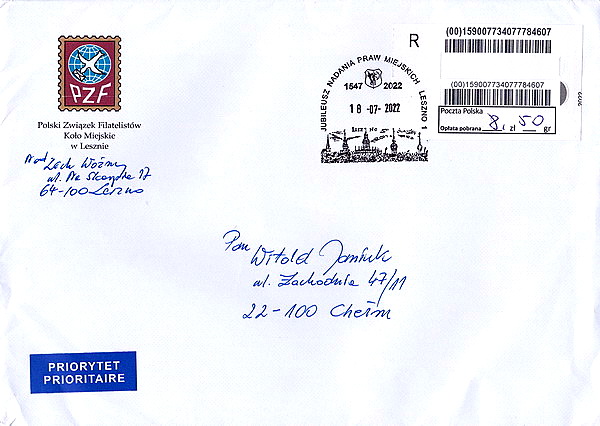 PZF
Polski Związek Filatelistów
Koło Miejskie
w Lesznie
Nad. Lech Woźny
17
64-100 Leszno
JUBILEUSZ NADANIA PRAW MIEJSKICH LESZNO 1
1547 2022
18 -07- 2022
R
(00)159007734077784607
(00)159007734077784607
Poczta Polska
Opłata pobrana 8, zł 50 gr
2022
Pan
Witold Janiuk
ul. Zachodnia 47/11
22-100 Chełm
PRIORYTET
PRIORITAIRE